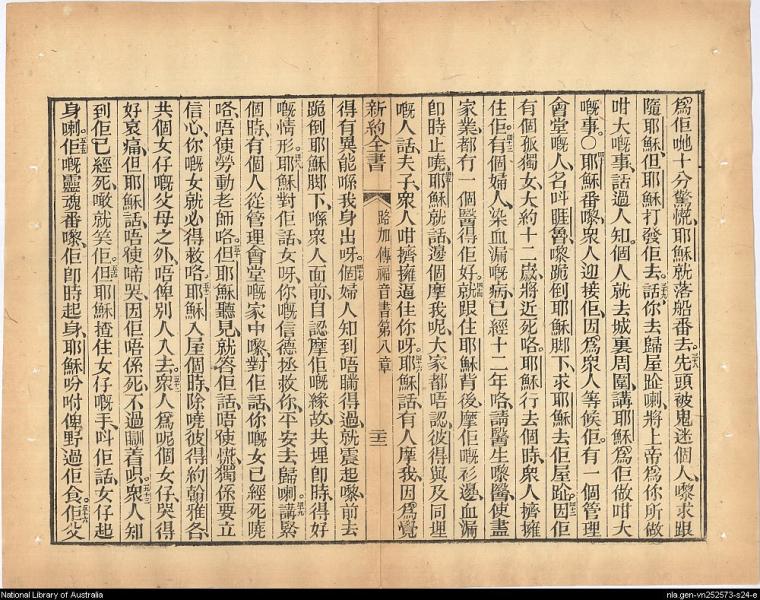 爲佢哋十分驚慌、耶穌就落船番去。先頭被鬼迷個人、嚟求跟
隨耶穌、但耶穌打發佢去、話、你去歸屋跲喇、將上帝爲你所做
咁大嘅事、話過人知、個人就去城裏周圍講耶穌爲佢做咁大
嘅事。○耶穌番嚟、衆人迎接佢、因爲衆人等候佢。有一個管理
會堂嘅人、名呌睚魯、嚟跪倒耶穌脚下、求耶穌去佢屋跲。因佢
有個孤獨女、大約十二歲、將近死咯、耶穌行去個時、衆人擠擁
住佢。有個婦人、染血漏嘅病、已經十二年咯、請醫生嚟醫、使盡
家業、都冇一個醫得佢好。就跟住耶穌背後、摩佢嘅衫邊、血漏
卽時止嘵、耶穌就話、邊個摩我呢、大家都唔認、彼得與及同埋
嘅人話、夫子、衆人咁擠擁逼住你呀。耶穌話、有人摩我、因爲覺
新約全書 路加傳福音書第八章 二十二
得有異能喺我身出呀。個婦人知到唔瞞得過、就震起嚟、前去
跪倒耶穌脚下、喺衆人面前、自認摩佢嘅緣故、共埋卽時得好
嘅情形。耶穌對佢話、女呀、你嘅信德拯救你、平安去歸喇。講緊
個時、有個人從管理會堂嘅家中嚟、對佢話、你嘅女已經死嘵
咯、唔使勞動老師咯。但耶穌聽見、就答佢話、唔使慌、獨係要立
信心、你嘅女就必得救咯。耶穌入屋個時、除嘵彼得約翰雅各、
共個女仔嘅父母之外、唔俾別人入去。衆人爲呢個女仔、哭得
好哀痛、但耶穌話、唔使啼哭、因佢唔係死、不過瞓着唄。衆人知
到佢已經死、噉就笑佢。但耶穌揸住女仔嘅手、呌佢話、女仔起
身喇。佢嘅靈魂番嚟、佢卽時起身、耶穌吩咐俾野過佢食。佢父
National Library of Australia
nla.gen-vn252573-s24-e